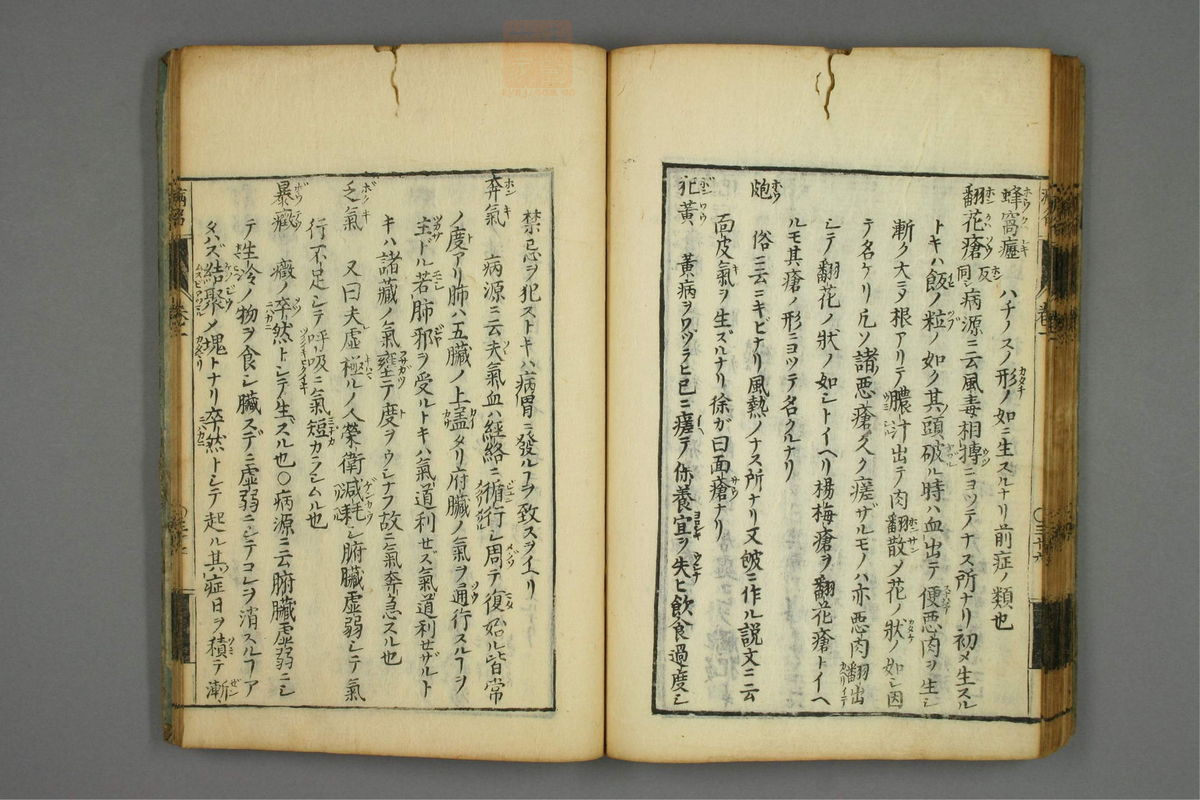 蜂窩癧 ハチノスノ形ノ如ニ生スルナリ前症ノ類也
翻花瘡 同シ病源ニ云風毒相搏ニヨツテナス所ナリ初メ生スル
トキハ飯ノ粒ノ如ク其頭破ル時ハ血出テ便悪肉ヲ生シ
漸ク大ニ乄根アリテ膿汁出テ肉翻散乄花ノ狀ノ如シ因
テ名ケリ凡ソ諸悪瘡久ク瘥ザルモノハ亦悪肉翻出
シテ翻花ノ狀ノ如シトイヘリ楊梅瘡ヲ翻花瘡トイヘ
ルモ其瘡ノ形ニヨツテ名クルナリ
皰 俗ニ云ニキビナリ風熱ノナス所ナリ又皷ニ作ル説文ニ云
面皮氣ヲ生ズルナリ徐が曰面瘡ナリ
犯黃 黃病ヲワヅラヒ已ニ瘥テ保養宜ヲ失ヒ飲食過度シ
禁忌ヲ犯ストキハ病胃ニ發ルヿヲ致スヲイヘリ
奔氣 病源ニ云夫氣血ハ經絡ニ循行シ周テ復始ル皆常
ノ度アリ肺ハ五臓ノ上盖タリ府臓ノ氣ヲ通行スルヿヲ
主ドル若肺邪ヲ受ルトキハ氣道利せズ氣道利せザルト
キハ諸藏ノ氣壅テ度ヲウシナフ故ニ氣奔急スル也
乏氣 又曰夫虚極ルノ人榮衛減耗シ腑臓虚弱シテ氣
行不足シテ呼吸ニ氣短カラシムル也
暴癥 癥ノ卒然トシテ生ズル也〇病源ニ云腑臓虚弱ニシ
テ生冷ノ物ヲ食シ臓スデニ虚弱ニシテコレヲ消スルヿア
タハズ結聚乄塊トナリ卒然トシテ起ル其症日ヲ積テ漸